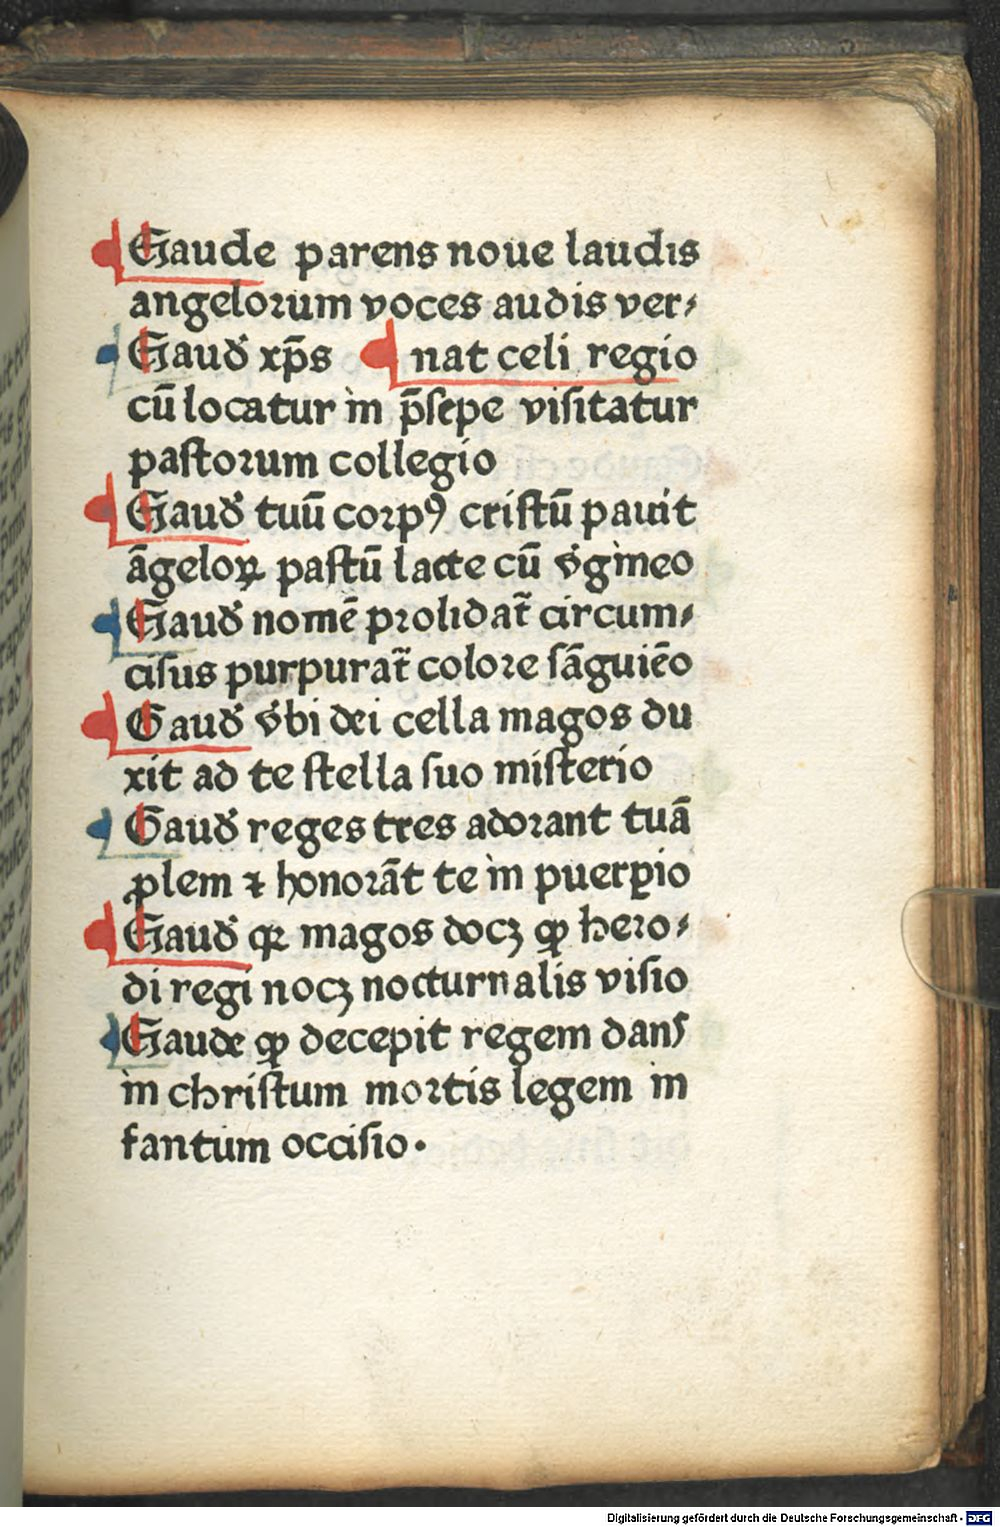 Gaude parens noue laudis
angeloꝛum voces audis ver⸗
Gaud̛ xp̄s nat celi regio
cū locatur in p̄sepe visitatur
pastoꝛum collegio
Gaud̛ tuū coꝛpꝰ cristū pauit
āgeloꝝ pastū lacte cū v̛gineo
Gaud̛ nomē pꝛolidat̄ circum⸗
cisus purpurat̄ coloꝛe sāguiēo
Gaud̛ v̛bi dei cella magos du
xit ad te stella suo misterio
Gaud̛ reges tres adoꝛant tuā
ꝓlem ⁊ honoꝛāt te in puerꝑio
Gaud̛ qꝛ magos docꝫ ꝙ heꝛo⸗
di regi nocꝫ nocturnalis visio
Gaude ꝙ decepit regem dans
in christum moꝛtis legem in
fantum occisio.
Digitalisierung gefördert durch die Deutsche Forschungsgemeinschaft - DFG